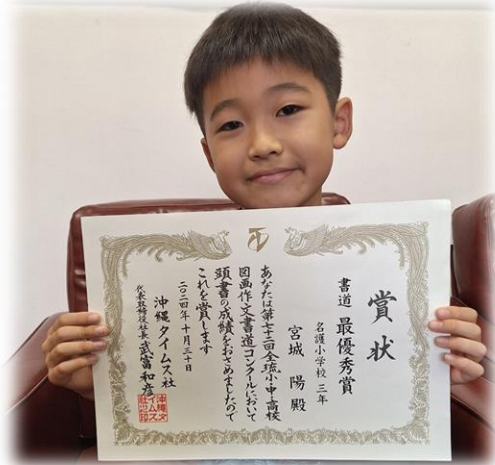 賞状
書道 最優秀賞
名護小学校 三年
宮城 陽 殿
あなたは第七十二回全琉小・中・高校
図画・作文・書道コンクールにおいて
頭書の成績をおさめましたので
これを賞します
二〇二四年十月三十日
沖縄タイムス社
代表取締役社長 武富和彦